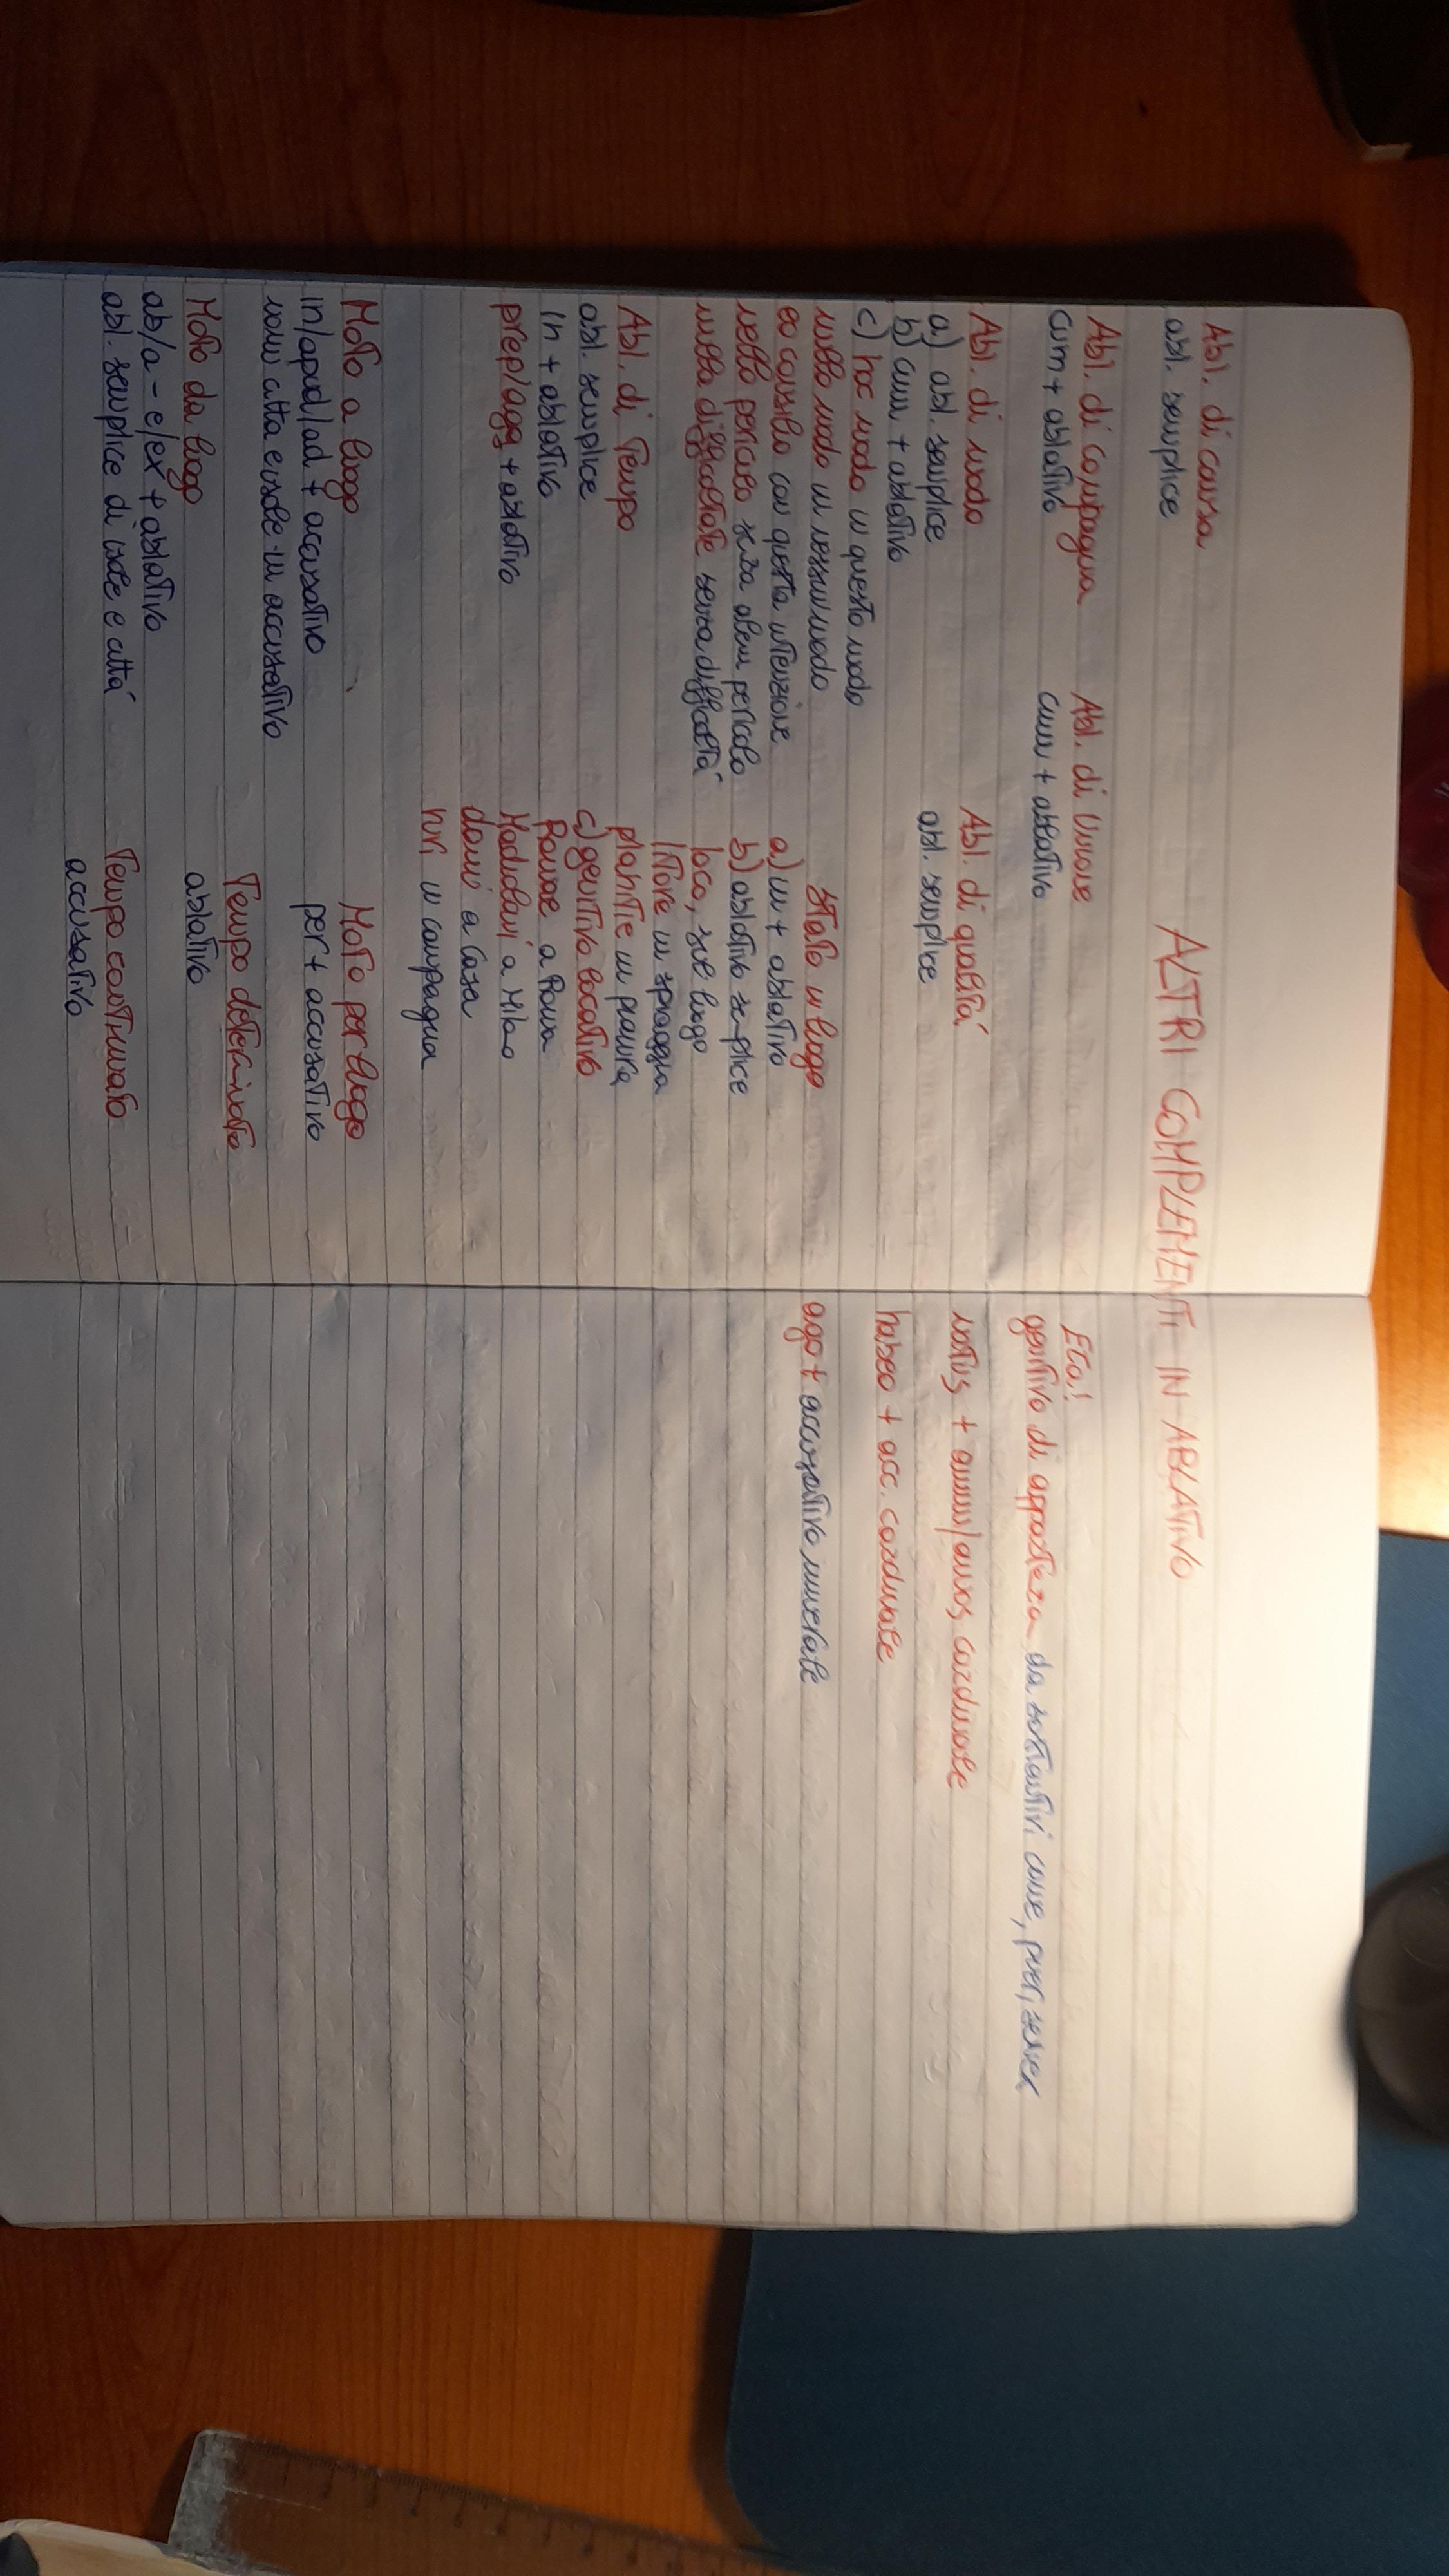 ALTRI COMPLEMENTI IN ABLATIVO
Abl. di causa
abl. semplice
Abl. di compagnia
cum + ablativo
Abl. di Unione
cum + ablativo
Abl. di modo
a) abl. semplice
b) cum + ablativo
c) hoc modo in questo modo
nullo modo in nessun modo
eo consilio con questa intenzione
nello pericolo senza alcun pericolo
nulla difficoltate senza difficoltá
Abl. di qualitá
abl. semplice
Abl. di Tempo
abl. semplice
in + ablativo
prep/agg + ablativo
Stato in luogo
a) in + ablativo
b) ablativo semplice
loco, sul luogo
litore in spiaggia
planitie in pianura
c) genitivo locativo
Romae a Roma
Mediolani a Milano
domi a casa
ruri in campagna
Moto a luogo
in/apud/ad + accusativo
nomi cittá e isole in accusativo
Moto per luogo
per + accusativo
Moto da luogo
ab/a - e/ex + ablativo
abl. semplice di isole e cittá
Tempo determinato
ablativo
Tempo continuato
accusativo
Etá!
genitivo di appartenza da sostantivi come, pueri, senex
natus + annum/annos cardinale
habeo + acc. cardinale
ago + accusativo numerale